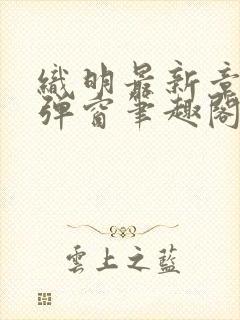 織明最新章
彈窗筆趣閣
雲上之藍